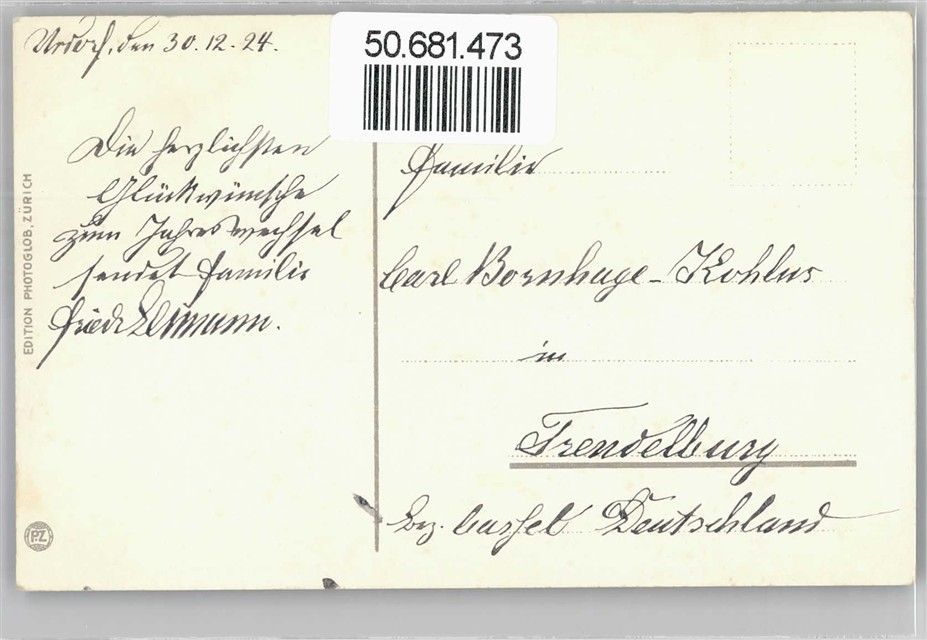 Urdorf, den 30.12.24.
50.681.473
Die herzlichsten
Glückwünsche
zum Jahreswechsel
sendet Familie
Friedr.
EDITION PHOTOGLOB, ZÜRICH
PZ
Familie
Carl Bornhage-Kohlus
in
Trendelburg
Bez. Cassel Deutschland